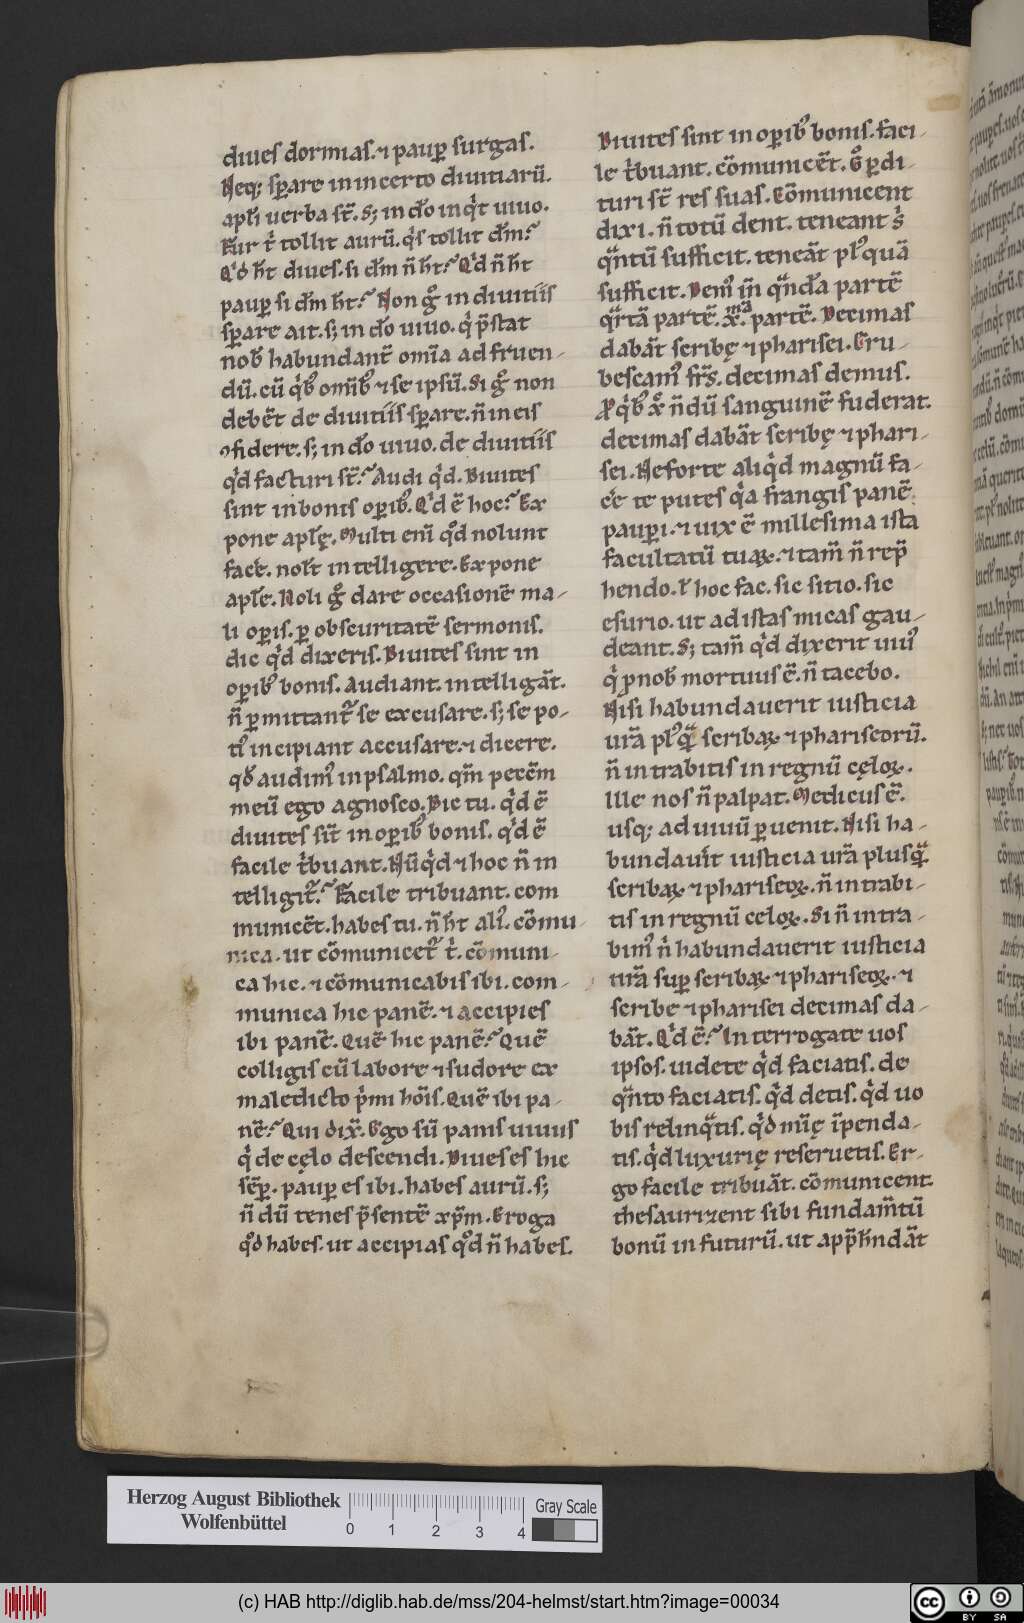 diues dormias. ⁊ paup̱ surgas.
Neq; sp̱are in incerto diuitiarū.
apl̄i uerba st̄. s; in do̅ inq̇t uiuo.
Fur t̓ tollit aurū. q̓s tollit dm̄?
Q̓d ht̄ diues. si dm̄ n̄ ht̄? Q̓d n̄ ht̄
paup̱ si dm̄ ht̄? Non gͦ in diuitiis
sp̱are ait. s; in do̅ uiuo. q̓ p̄stat
nob᷒ habundant̄ omīa ad fruen-
dū. cū q̓b᷒ omīb᷒ ⁊ se ipsū. Si gͦ non
debēt de diuitiis sp̱are. n̄ in eis
ꝯfidere. s; in do̅ uiuo. de diuitiis
q̓d facturi st̄? Audi q̓d. Diuites
sint in bonis op̱ib᷒. Q̓d ē hoc? Ex
pone apl̄ę. Multi enī qͦd nolunt
facē. nolt̄ intelligere. Expone
apl̄e. Noli gͦ dare occasionē ma-
li op̱is. p̱ obscuritatē sermonis.
dic q̓d dixeris. Diuites sint in
op̱ib᷒ bonis. Audiant. intelligāt.
n̄ p̱mittant᷑ se excusare. s; se po-
ti᷒ incipiant accusare. ⁊ dicere.
qd̄ audim᷒ in psalmo. qm̄ peccm̄
meū ego agnosco. Dic tu. q̓d ē
diuites sīt in op̱ib᷒ bonis. q̓d ē
facile t̓buant. Nūq̓d ⁊ hoc n̄ in
telligit᷑? Facile tribuant. com
municēt. habes tu. n̄ ht̄ ali᷒. cōmu
nica. ut cōmunicet᷑ t̓. cōmuni-
ca hic. ⁊ cōmunicabis ibi. com-
munica hic panē. ⁊ accipies
ibi panē. Quē hic panē? Quē
colligis cū labore ⁊ sudore ex
maledicto p̓mi hoīs. Quē ibi pa-
nē? Qui dix̄. Ego sū panis uiuus
q̓ de cęlo descendi. Diues es hic
sēp̱. paup̱ es ibi. habes aurū. s;
n̄ dū tenes p̄sentē xp̄m. Eroga
qͦd habes. ut accipias qͦd n̄ habes.
Diuites sint in op̱ib᷒ bonis. faci-
le t̓buant. cōmunicēt. Gͦ p̱di-
turi st̄ res suas. Cōmunicent
dixi. n̄ totū dent. teneant s̓
qᷓntū sufficit. teneāt pl᷒ quā
sufficit. Dem᷒ in̄ qᷓnda̅ partē
qᷓrtā partē. x.ᵐᵃ partē. Decimas
dabāt scribę ⁊ pharisei. Eru-
bescam᷒ frs̄. decimas demus.
P̱ q̓b᷒ xͦ n̄dū sanguinē fuderat.
decimas dabāt scribę ⁊ phari-
sei. Ne forte aliq̓d magnū fa-
cē te putes q̓a frangis panē
paup̱i. ⁊ uix ē millesima ista
facultatū tuaꝝ. ⁊ tam̄ n̄ rep̄
hendo. l̓ hoc fac. sic sitio. sic
esurio. ut ad istas micas gau-
deant. S; tam̄ q̓d dixerit uiu᷒
q̓ p̱ nob᷒ mortuus ē. n̄ tacebo.
Nisi habundauerit iusticia
urā pl᷒qᷓ scribaꝝ ⁊ phariseorū.
n̄ intrabitis in regnū cęloꝝ.
Ille nos n̄ palpat. Medicus ē.
usq; ad uiuū p̱uenit. Nisi ha-
bundauīt iusticia urā plusqᷓ
scribaꝝ ⁊ phariseoꝝ. n̄ intrabi-
tis in regnū celoꝝ. Si n̄ intra-
bim᷒ n̓ habundauerit iusticia
urā sup̱ scribaꝝ ⁊ phariseoꝝ. ⁊
scribe ⁊ pharisei decimas da-
bāt. Q̓d ē? Interrogate uos
ipsos. uidete q̓d faciatis. de
qᷓnto faciatis. q̓d detis. q̓d uo
bis relinqᷓtis. q̓d mīę īpenda-
tis. q̓d luxurię reseruetis. Er-
go facile tribuāt. cōmunicent.
thesaurizent sibi fundam̄tū
bonū in futurū. ut app̄hndāt
Herzog August Bibliothek
Wolfenbüttel
0 1 2 3 4
Gray Scale
(c) HAB http://diglib.hab.de/mss/204-helmst/start.htm?image=00034
cc BY SA